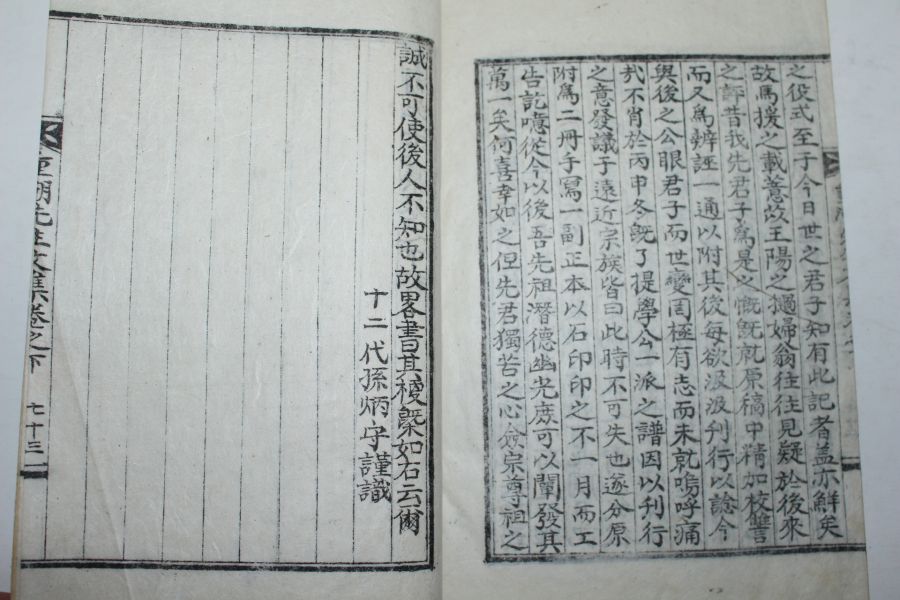 之役式至于今日世之君子知有此記者盖亦鮮矣
故馬援之載薏苡王陽之撾婦翁往往見疑於後來
之評昔我先君子爲是之慨旣就原稿中精加校讐
而又爲辨誣一通以附其後每欲汲汲刊行以諗今
與後之公眼君子而世變罔極有志而未就嗚呼痛
我不肖於丙申冬旣了提學公一派之譜因以刊行
之意發議于遠近宗族皆曰此時不可失也遂分原
附爲二冊手寫一副正本以石印印之不一月而工
告訖噫從今以後吾先祖潛德幽光庶可以闡發其
萬一矣何喜幸如之但先君獨苦之心僉宗尊祖之
誠不可使後人不知也故畧書其梗槩如右云爾
十二代孫炳守謹識
先生文集卷之下
七十三